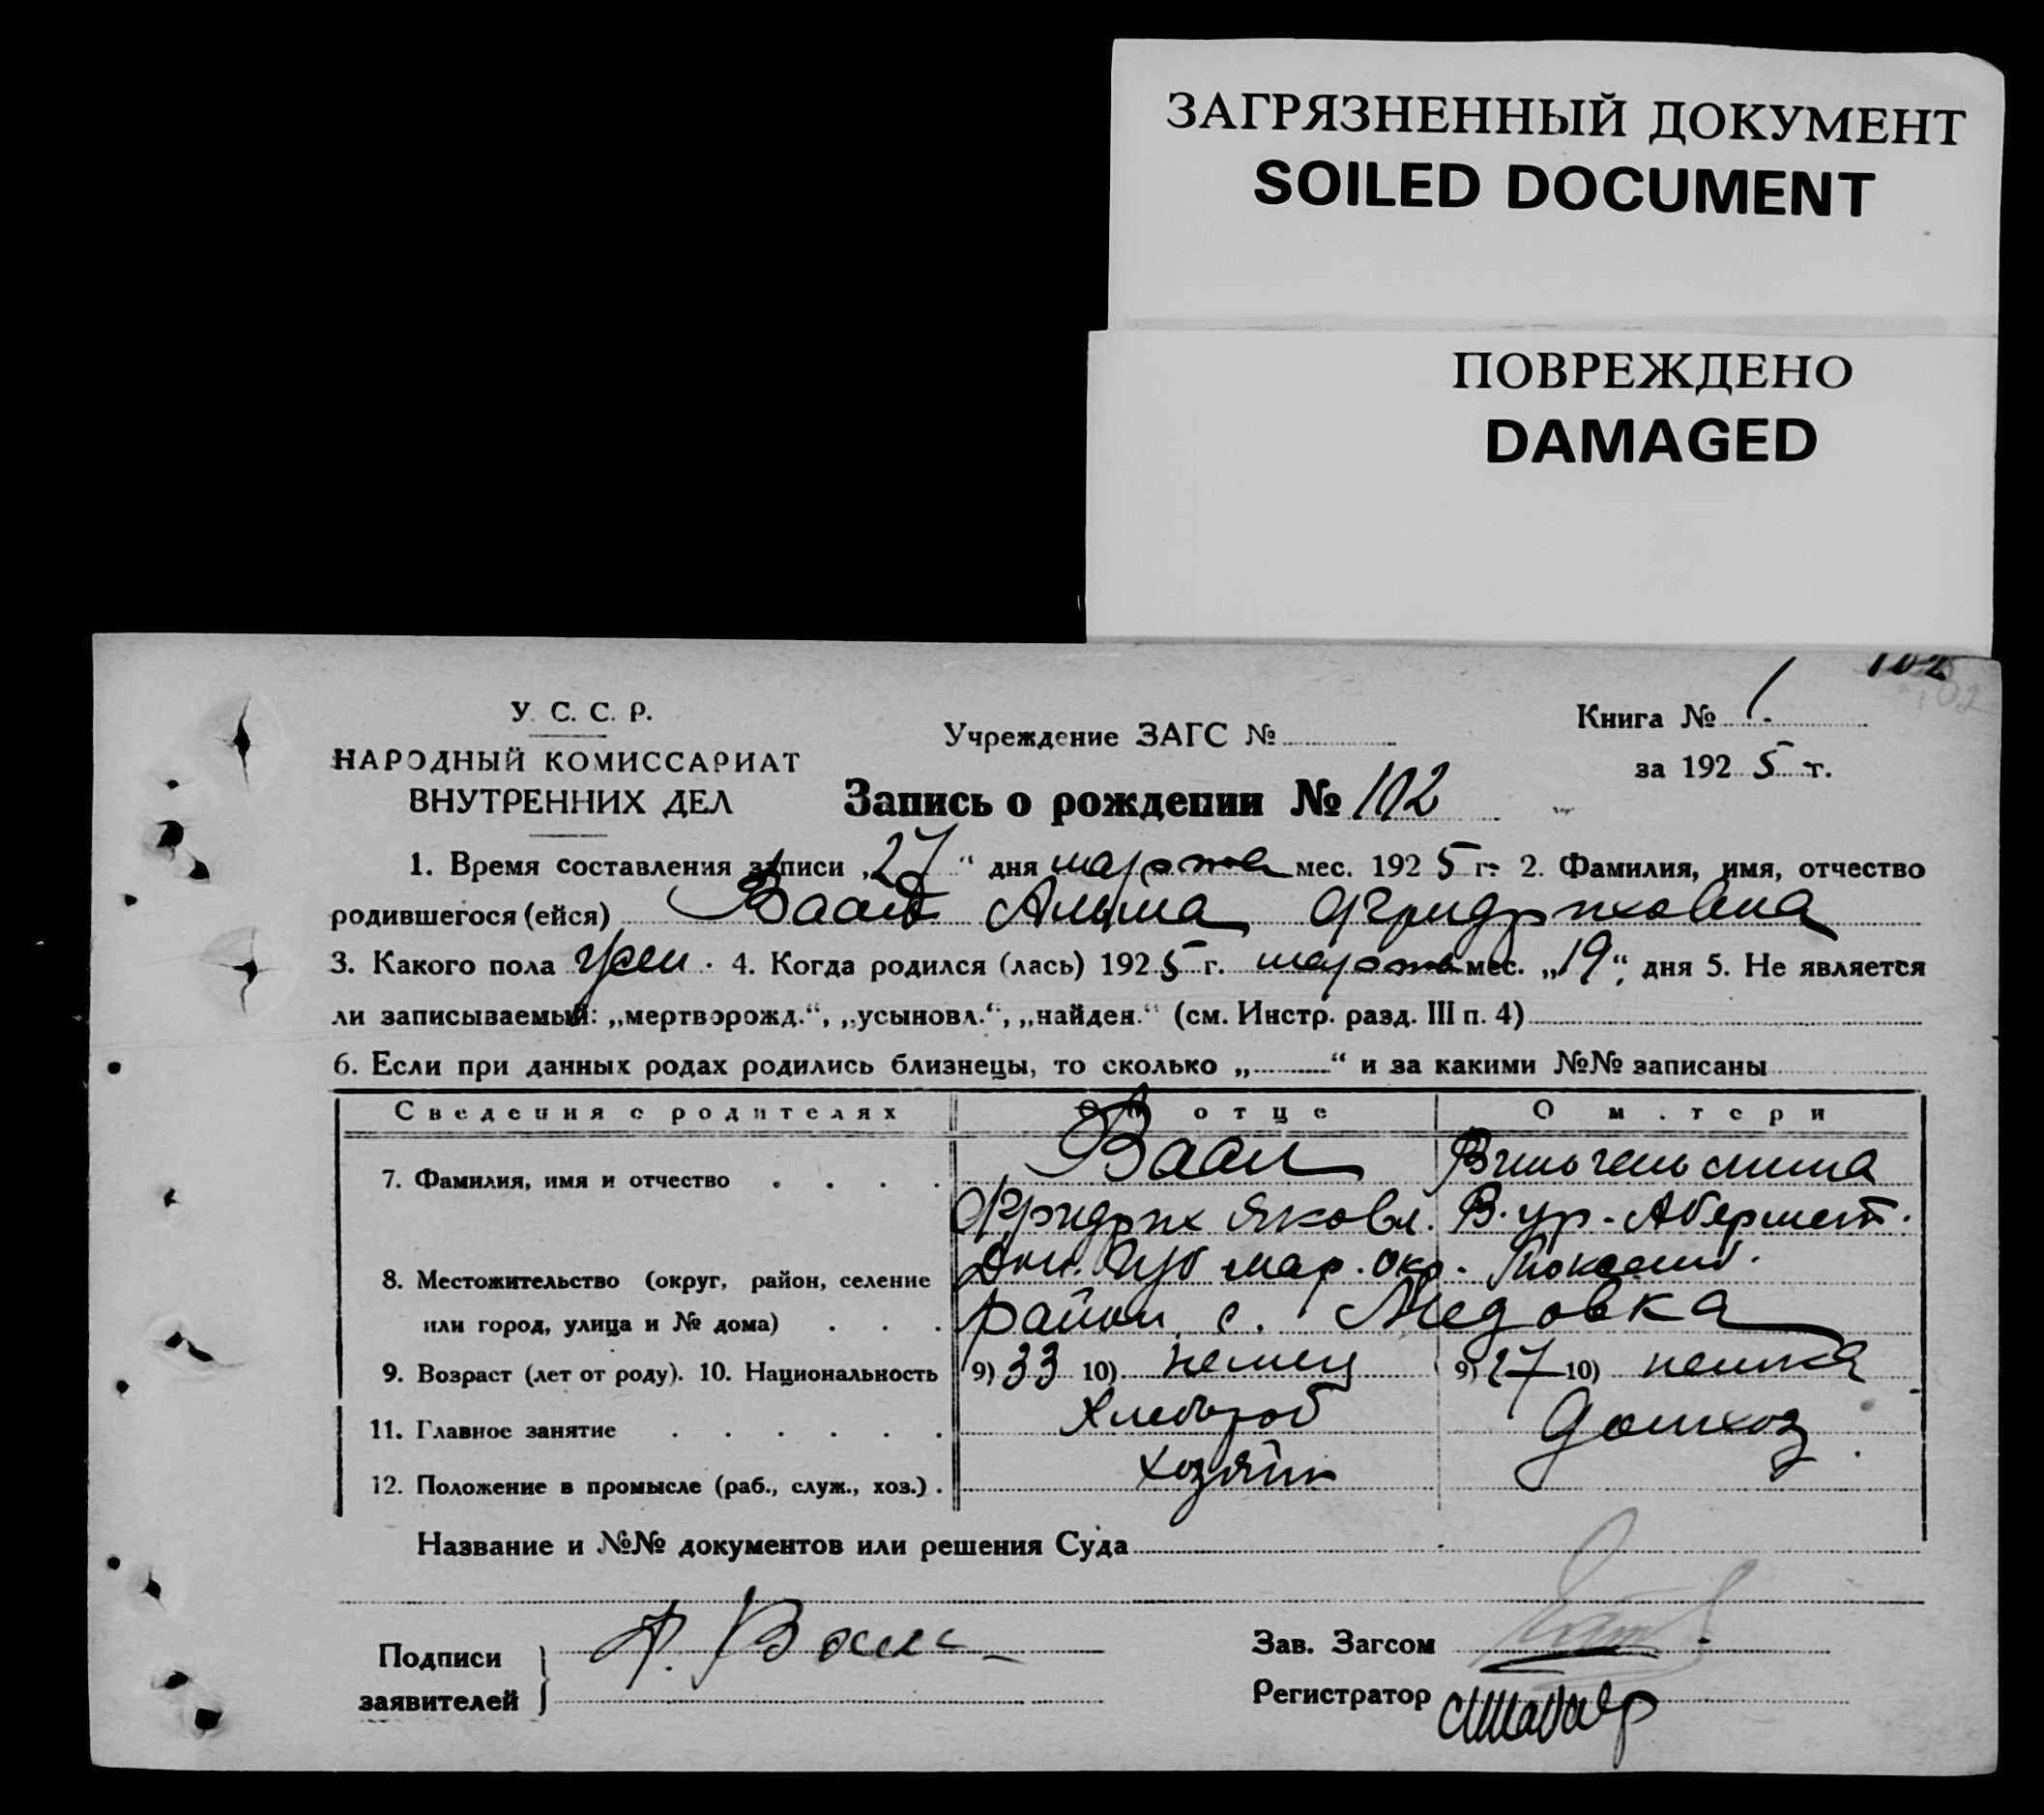 ЗАГРЯЗНЕННЫЙ ДОКУМЕНТ
SOILED DOCUMENT
ПОВРЕЖДЕНО
DAMAGED
102
102
У. С. С. Р.
НАРОДНЫЙ КОМИССАРИАТ
ВНУТРЕННИХ ДЕЛ
Учреждение ЗАГС №
Книга № 1.
за 1925 г.
Запись о рождении № 102
1. Время составления записи „27“ дня марта мес. 1925 г. 2. Фамилия, имя, отчество
родившегося (ейся) Альма Фридриховна
3. Какого пола жен. 4. Когда родился (лась) 1925 г. марта мес. „19“, дня 5. Не является
ли записываемый: „мертворожд.“, „усыновл.“, „найден.“ (см. Инстр. разд. III п. 4)
6. Если при данных родах родились близнецы, то сколько „ “ и за какими №№ записаны
Сведения о родителях Об отце О матери
7. Фамилия, имя и отчество Ваал Вильгельмина
Фридрих Яковл. В. ур.
8. Местожительство (округ, район, селение Дон. Губ мар. окр.
или город, улица и № дома) район с. Медовка
9. Возраст (лет от роду). 10. Национальность 9) 33 10) немец 9) 27 10) немка
11. Главное занятие Хлебороб домхоз
12. Положение в промысле (раб., служ., хоз.) хозяин
Название и №№ документов или решения Суда
Подписи
заявителей
Зав. Загсом
Регистратор